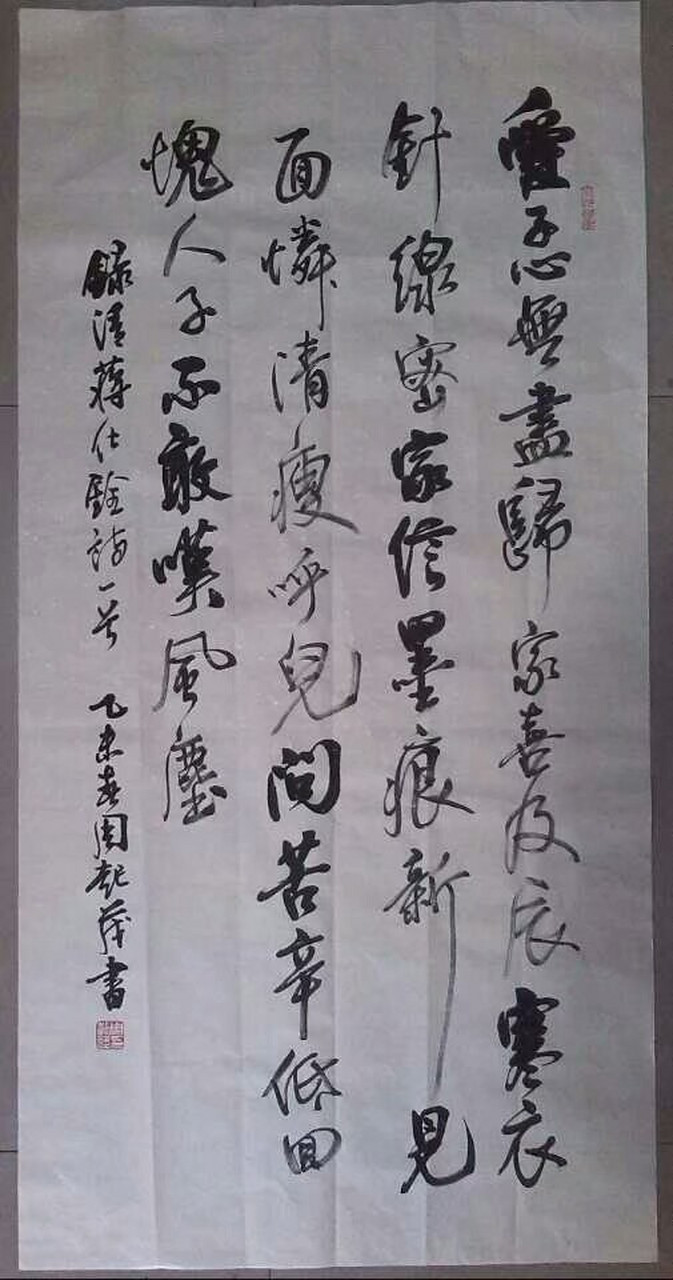 愛子心無盡歸家喜及辰寒衣
針線密家信墨痕新見
面憐清瘦呼兒問苦辛低回
愧人子不敢嘆風塵
錄清蔣仕銓詩一首 乙未春周起茂書